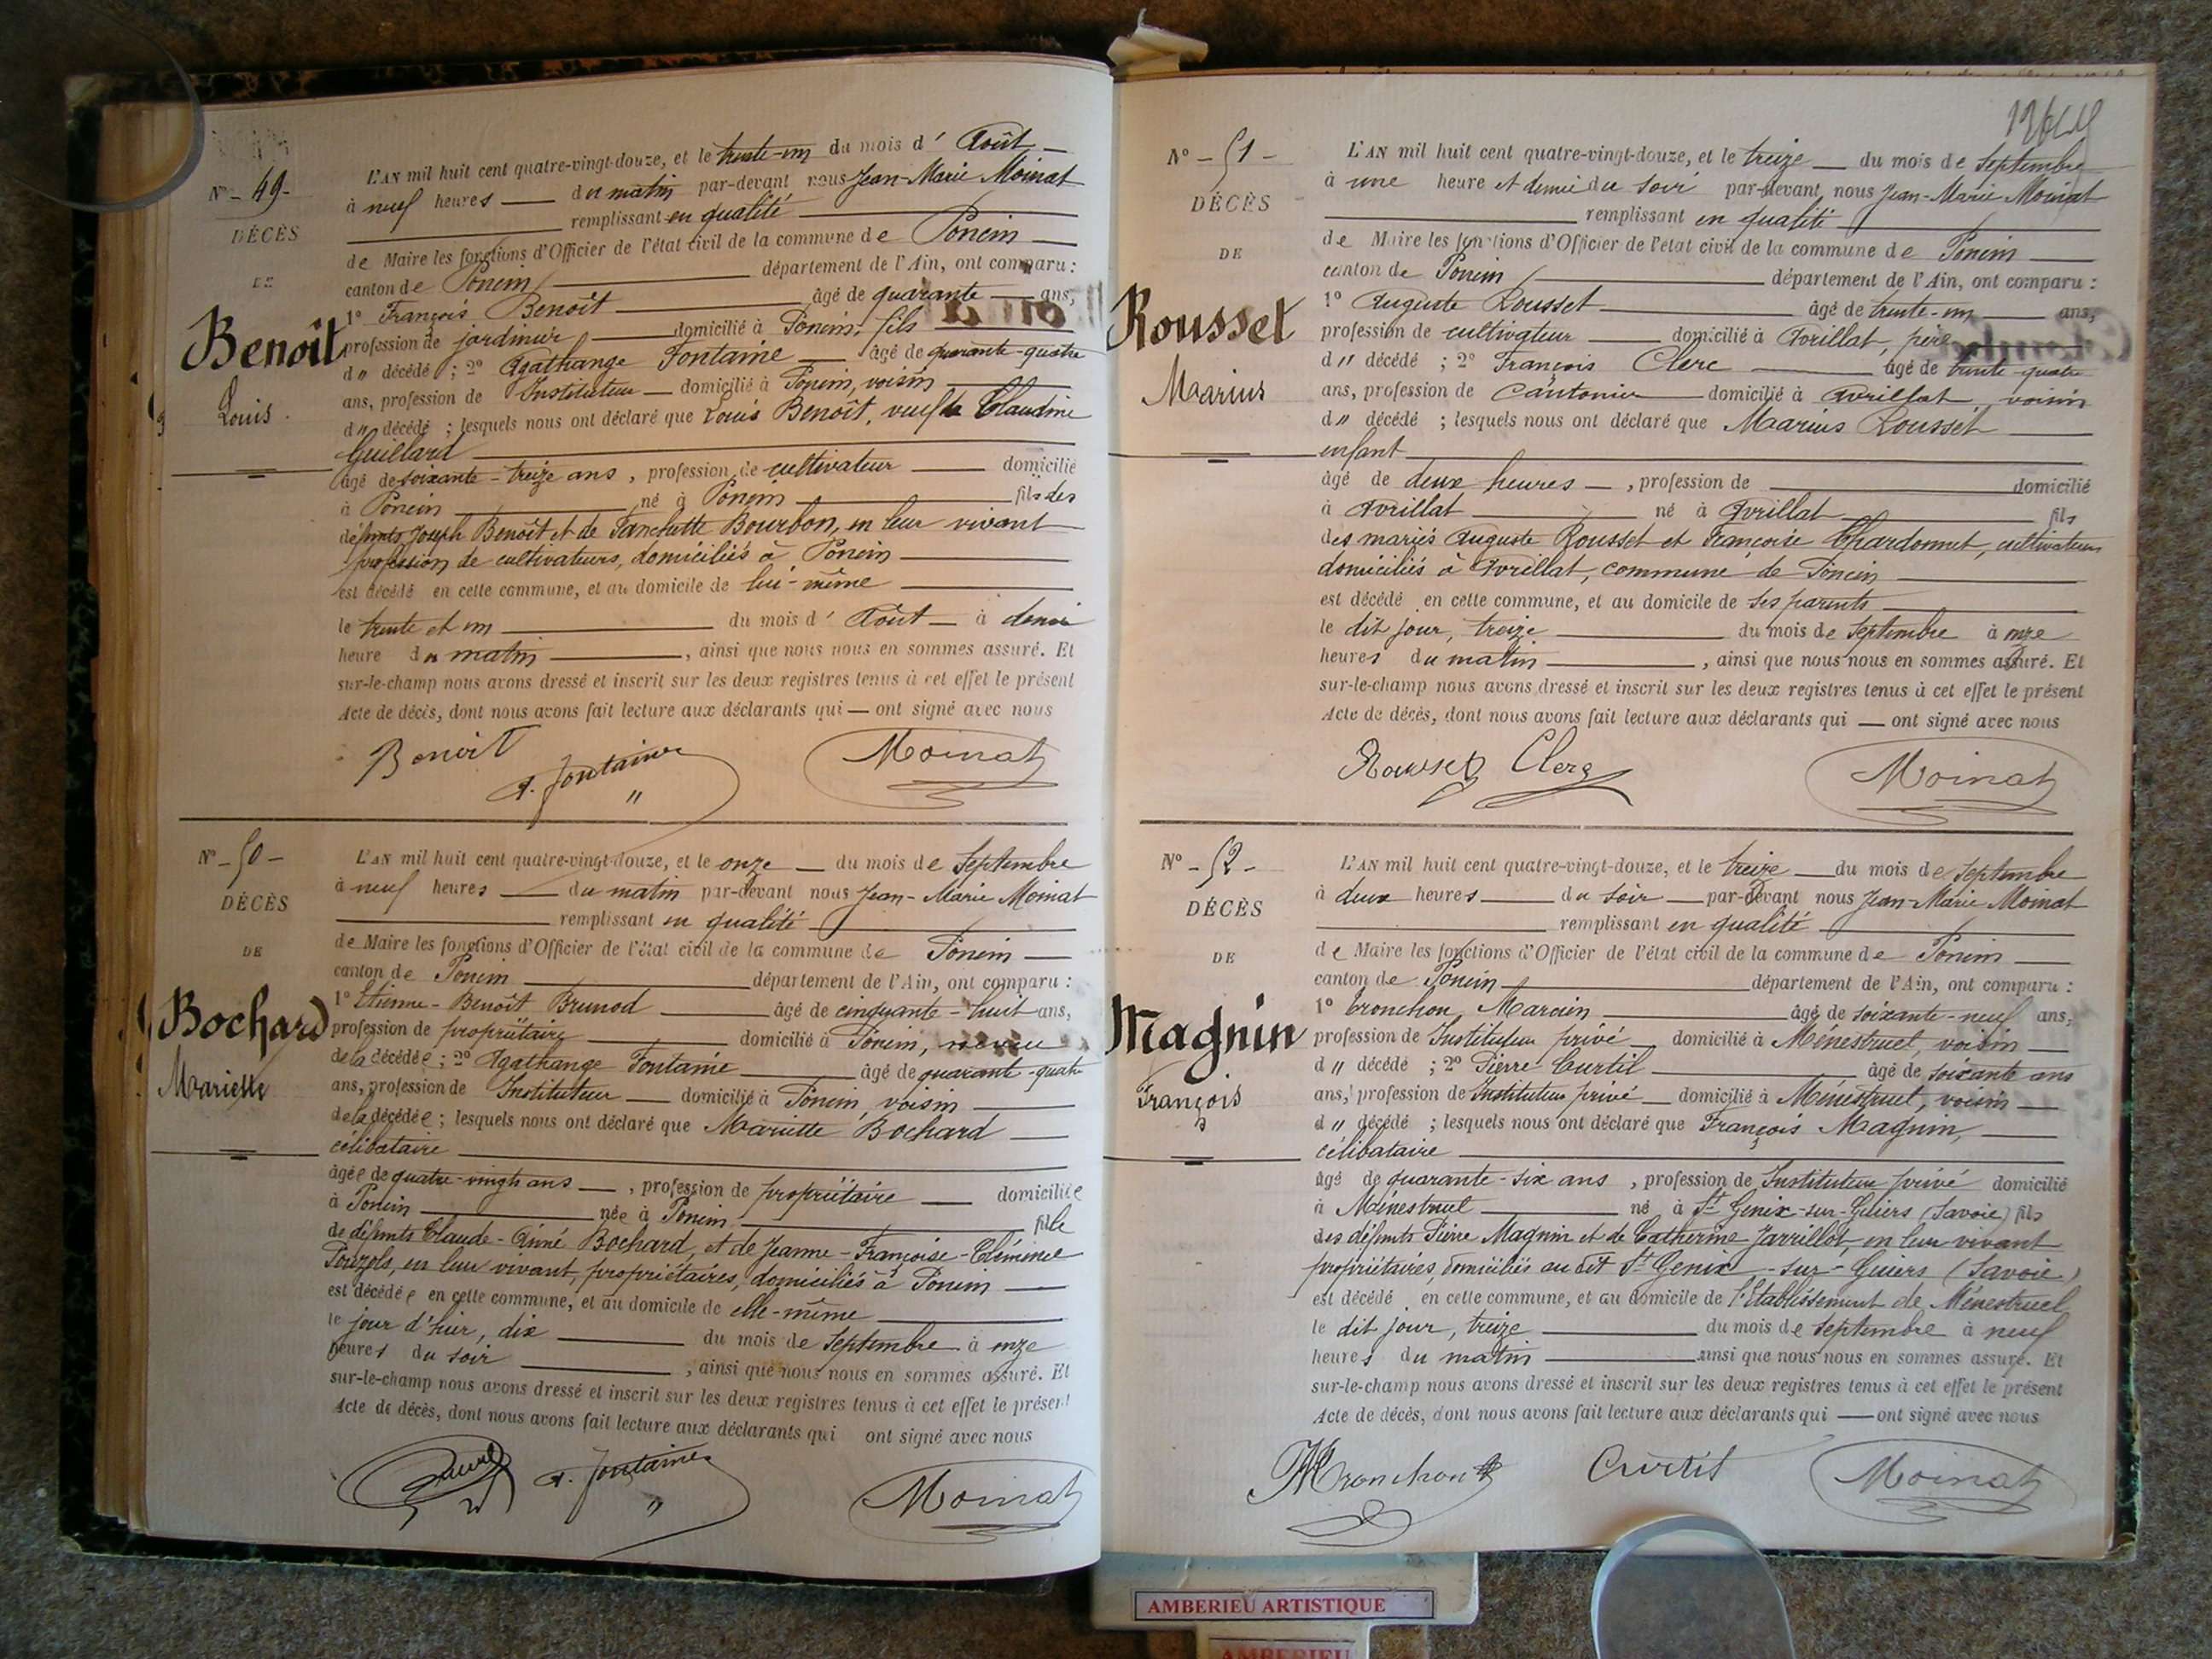 N° - 49 -
DÉCÈS
DE
Benoît
Louis
L'AN mil huit cent quatre-vingt-douze, et le trente-un du mois d' Août
à neuf heures du matin par-devant nous Jean-Marie Moinat
remplissant en qualité
de Maire les fonctions d'Officier de l'état civil de la commune de Poncin
canton de Poncin département de l'Ain, ont comparu :
1° François Benoît âgé de quarante ans,
profession de jardinier domicilié à Poncin, fils
d u décédé ; 2° Agathange Fontaine âgé de quarante-quatre
ans, profession de Instituteur domicilié à Poncin, voisin
d u décédé ; lesquels nous ont déclaré que Louis Benoît, veuf de Claudine
Guillard
âgé de soixante-treize ans, profession de cultivateur domicilié
à Poncin né à Poncin fils des
défunts Joseph Benoît et de Fanchette Bourbon, en leur vivant
profession de cultivateurs, domiciliés à Poncin
est décédé en cette commune, et au domicile de lui-même
le trente et un du mois d' Août à demie
heure du matin, ainsi que nous nous en sommes assuré. Et
sur-le-champ nous avons dressé et inscrit sur les deux registres tenus à cet effet le présent
Acte de décès, dont nous avons fait lecture aux déclarants qui — ont signé avec nous
Benoit A. Fontaine Moinat
N° - 50 -
DÉCÈS
DE
Bochard
Mariette
L'AN mil huit cent quatre-vingt-douze, et le onze du mois de Septembre
à neuf heures du matin par-devant nous Jean-Marie Moinat
remplissant en qualité
de Maire les fonctions d'Officier de l'état civil de la commune de Poncin
canton de Poncin département de l'Ain, ont comparu :
1° Etienne-Benoît Brunod âgé de cinquante-huit ans,
profession de propriétaire domicilié à Poncin, neveu
de la décédée ; 2° Agathange Fontaine âgé de quarante-quatre
ans, profession de Instituteur domicilié à Poncin, voisin
de la décédée ; lesquels nous ont déclaré que Mariette Bochard
célibataire
âgée de quatre-vingts ans, profession de propriétaire domiciliée
à Poncin née à Poncin fille
de défunts Claude-Aimé Bochard, et de Jeanne-Françoise-Clémence
Pouzols, en leur vivant, propriétaires, domiciliés à Poncin
est décédée en cette commune, et au domicile de elle-même
le jour d'hier, dix du mois de Septembre à onze
heures du soir, ainsi que nous nous en sommes assuré. Et
sur-le-champ nous avons dressé et inscrit sur les deux registres tenus à cet effet le présent
Acte de décès, dont nous avons fait lecture aux déclarants qui ont signé avec nous
A. Fontaine Moinat
N° - 51 -
DÉCÈS
DE
Rousset
Marius
L'AN mil huit cent quatre-vingt-douze, et le treize du mois de Septembre
à une heure et demie du soir par-devant nous Jean-Marie Moinat
remplissant en qualité
de Maire les fonctions d'Officier de l'état civil de la commune de Poncin
canton de Poncin département de l'Ain, ont comparu :
1° Auguste Rousset âgé de trente-un ans,
profession de cultivateur domicilié à Avrillat, père
d u décédé ; 2° François Clerc âgé de trente-quatre
ans, profession de Cantonier domicilié à Avrillat, voisin
d u décédé ; lesquels nous ont déclaré que Marius Rousset
enfant
âgé de deux heures, profession de domicilié
à Avrillat né à Avrillat fils
des mariés Auguste Rousset et Françoise Chardonnet, cultivateurs
domiciliés à Avrillat, commune de Poncin
est décédé en cette commune, et au domicile de ses parents
le dit jour, treize du mois de Septembre à onze
heures du matin, ainsi que nous nous en sommes assuré. Et
sur-le-champ nous avons dressé et inscrit sur les deux registres tenus à cet effet le présent
Acte de décès, dont nous avons fait lecture aux déclarants qui — ont signé avec nous
Rousset Clerc Moinat
N° - 52 -
DÉCÈS
DE
Magnin
François
L'AN mil huit cent quatre-vingt-douze, et le treize du mois de Septembre
à deux heures du soir par-devant nous Jean-Marie Moinat
remplissant en qualité
de Maire les fonctions d'Officier de l'état civil de la commune de Poncin
canton de Poncin département de l'Ain, ont comparu :
1° Tronchon Marcin âgé de soixante-neuf ans,
profession de Instituteur privé domicilié à Ménestruel, voisin
d u décédé ; 2° Pierre Curtil âgé de soixante ans
ans, profession de Instituteur privé domicilié à Ménestruel, voisin
d u décédé ; lesquels nous ont déclaré que François Magnin,
célibataire
âgé de quarante-six ans, profession de Instituteur privé domicilié
à Ménestruel né à St Genix-sur-Guiers (Savoie) fils
des défunts Pierre Magnin et de Catherine Javrillot, en leur vivant
propriétaires, domiciliés au dit St Genix-sur-Guiers (Savoie)
est décédé en cette commune, et au domicile de l'Etablissement de Ménestruel
le dit jour, treize du mois de Septembre à neuf
heures du matin ainsi que nous nous en sommes assuré. Et
sur-le-champ nous avons dressé et inscrit sur les deux registres tenus à cet effet le présent
Acte de décès, dont nous avons fait lecture aux déclarants qui — ont signé avec nous
Tronchon Curtil Moinat
AMBERIEU ARTISTIQUE
AMBERIEU